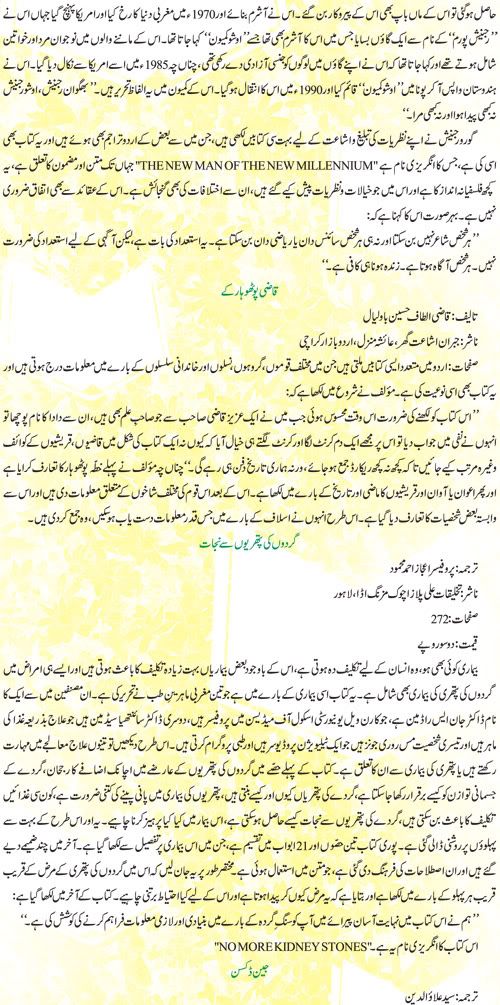 حاصل ہوگئی تو اس کے ماں باپ بھی اس کے پیروکار بن گئے۔ اس نے آشرم بنائے اور 1970ء میں مغربی دنیا کا رخ کیا اور امریکا پہنچ گیا جہاں اس نے
’’رجنیش پورم‘‘ کے نام سے ایک گاؤں بسایا جس میں اس کا آشرم بھی تھا جسے ’’اوشو کمیون‘‘ کہا جاتا تھا۔ اس کے ماننے والوں میں نوجوان مرد اور خواتین
شامل ہوتے تھے اور کہا جاتا تھا کہ اس نے اپنے گاؤں میں لوگوں کو جنسی آزادی دے رکھی تھی، چناں چہ 1985ء میں اسے امریکا سے نکال دیا گیا۔ اس نے
ہندوستان واپس آ کر پونا میں ’’اوشو کمیون‘‘ قائم کیا اور 1990ء میں اس کا انتقال ہوگیا۔ اس کے کمیون میں یہ الفاظ تحریر ہیں۔ ’’بھگوان رجنیش، اوشو رجنیش
نہ بھی پیدا ہوا اور نہ بھی مرا۔‘‘
گورو رجنیش نے اپنے نظریات کی تبلیغ و اشاعت کے لیے بہت سی کتابیں لکھی ہیں، جن میں سے بعض کے اردو تراجم بھی ہوئے ہیں اور یہ کتاب بھی
اسی کی ہے، جس کا انگریزی نام ہے "THE NEW MAN OF THE NEW MILLENNIUM" جہاں تک متن اور مضمون کا تعلق ہے، یہ
کچھ فلسفیانہ انداز کا ہے اور اس میں جو خیالات و نظریات پیش کیے گئے ہیں، ان سے اختلافات کی بھی گنجائش ہے۔ اس کے عقائد سے بھی اتفاق ضروری
نہیں ہے۔ بہر صورت اس کا کہنا ہے کہ:
’’ہر شخص شاعر نہیں بن سکتا اور نہ ہی ہر شخص سائنس دان یا ریاضی دان بن سکتا ہے۔ یہ استعداد کی بات ہے، لیکن آگہی کے لیے استعداد کی ضرورت
نہیں۔ ہر شخص آگاہ ہوتا ہے۔ زندہ ہونا ہی کافی ہے۔‘‘
قاضی پوٹھوہار کے
تالیف: قاضی الطاف حسین باولیال
ناشر: جبران اشاعت گھر، عائشہ منزل، اردو بازار کراچی
صفحات: اردو میں متعدد ایسی کتابیں ملتی ہیں جن میں مختلف قوموں، گروہوں، نسلوں اور خاندانی سلسلوں کے بارے میں معلومات درج ہوتی ہیں اور
یہ کتاب بھی اسی نوعیت کی ہے۔ مؤلف نے شروع میں لکھا ہے کہ:
’’اس کتاب کو لکھنے کی ضرورت اس وقت محسوس ہوئی جب میں نے ایک عزیز قاضی صاحب سے جو صاحب علم بھی ہیں، ان سے دادا کا نام پوچھا تو
انہوں نے نفی میں جواب دیا تو اس پر مجھے ایک دم کرنٹ لگا اور کرنٹ لگتے ہی خیال آیا کہ کیوں نہ ایک کتاب کی شکل میں قاضیوں، قریشیوں کے کوائف
وغیرہ مرتب کیے جائیں تاکہ کچھ نہ کچھ ریکارڈ جمع ہو جائے، ورنہ ہماری تاریخ دفن ہی رہے گی۔‘‘ چناں چہ مؤلف نے پہلے خطّہ پوٹھوہار کا تعارف کرایا ہے
اور پھر اعوان یا آوان اور قریشیوں کا ماضی اور تاریخ کے بارے میں لکھا ہے۔ اس کے بعد اس قوم کی مختلف شاخوں کے متعلق معلومات دی ہیں اور اس سے
وابستہ بعض شخصیات کا تعارف دیا گیا ہے۔ اس طرح انہوں نے اسلاف کے بارے میں جس قدر معلومات دست یاب ہو سکیں، وہ جمع کر دی ہیں۔
گردوں کی پتھریوں سے نجات
ترجمہ: پروفیسر اعجاز احمد محمود
ناشر: تخلیقات علی پلازا چوک مزنگ اڈا، لاہور
صفحات: 272
قیمت: دو سو روپے
بیماری کوئی بھی ہو، وہ انسان کے لیے تکلیف دہ ہوتی ہے، اس کے باوجود بعض بیماریاں بہت زیادہ تکلیف کا باعث ہوتی ہیں اور ایسے ہی امراض میں
گردوں کی پتھری کی بیماری بھی شامل ہے۔ یہ کتاب اسی بیماری کے بارے میں ہے جو تین مغربی ماہرین طب نے تحریر کی ہے۔ ان مصنفین میں سے ایک کا
نام ڈاکٹر جان ایس راڈ مین ہے، جو کارن ویل یونیورسٹی اسکول آف میڈیسن میں پروفیسر ہیں، دوسری ڈاکٹر سانتھیا سیڈ مین ہیں جو علاج بذریعہ غذا کی
ماہر ہیں اور تیسری شخصیت مس روری جونز ہیں جو ایک ٹیلیویژن پروڈیوسر ہیں اور طبی پروگرام کرتی ہیں۔ اس طرح دیکھیں تو تینوں علاج معالجے میں مہارت
رکھتے ہیں یا پتھری کی بیماری سے ان کا تعلق ہے۔ کتاب کے پہلے حصّے میں گردوں کی پتھریوں کے عارضے میں اچانک اضافے کا رجحان، گردے کے
جسمانی توازن کو کیسے برقرار رکھا جا سکتا ہے، گردے کی پتھریاں کیوں اور کیسے بنتی ہیں، پتھریوں کی بیماری میں پانی پینے کی کتنی ضرورت ہے، کون سی غذائیں
تکلیف کا باعث بن سکتی ہیں، گردے کی پتھریوں سے نجات کیسے حاصل ہو سکتی ہے، اس بیماری میں کیا کیا پرہیز کرنا چاہیے۔ یہ اور اس طرح کے بہت سے
پہلوؤں پر روشنی ڈالی گئی ہے۔ پوری کتاب تین حصّوں اور 21 ابواب میں تقسیم ہے، جن میں اس بیماری پر تفصیل سے لکھا گیا ہے۔ آخر میں چند ضمیمے دیے
گئے ہیں اور ان اصطلاحات کی فرہنگ دی گئی ہے، جو متن میں استعمال ہوئی ہے۔ مختصر طور پر یہ جان لیں کہ اس میں گردوں کی پتھری کے مرض کے قریب
قریب ہر پہلو کے بارے میں لکھا ہے اور بتایا ہے کہ یہ مرض کیوں کر پیدا ہوتا ہے اور اس کے لیے کیا احتیاط برتنی چاہیے۔ کتاب کے آخر میں لکھا گیا ہے:
’’ہم نے اس کتاب میں نہایت آسان پیرائے میں آپ کو سنگِ گردہ کے بارے میں بنیادی اور لازمی معلومات فراہم کرنے کی کوشش کی ہے۔‘‘
اس کتاب کا انگریزی نام یہ ہے۔ "NO MORE KIDNEY STONES"
جین ڈکسن
ترجمہ: سید علاؤ الدین